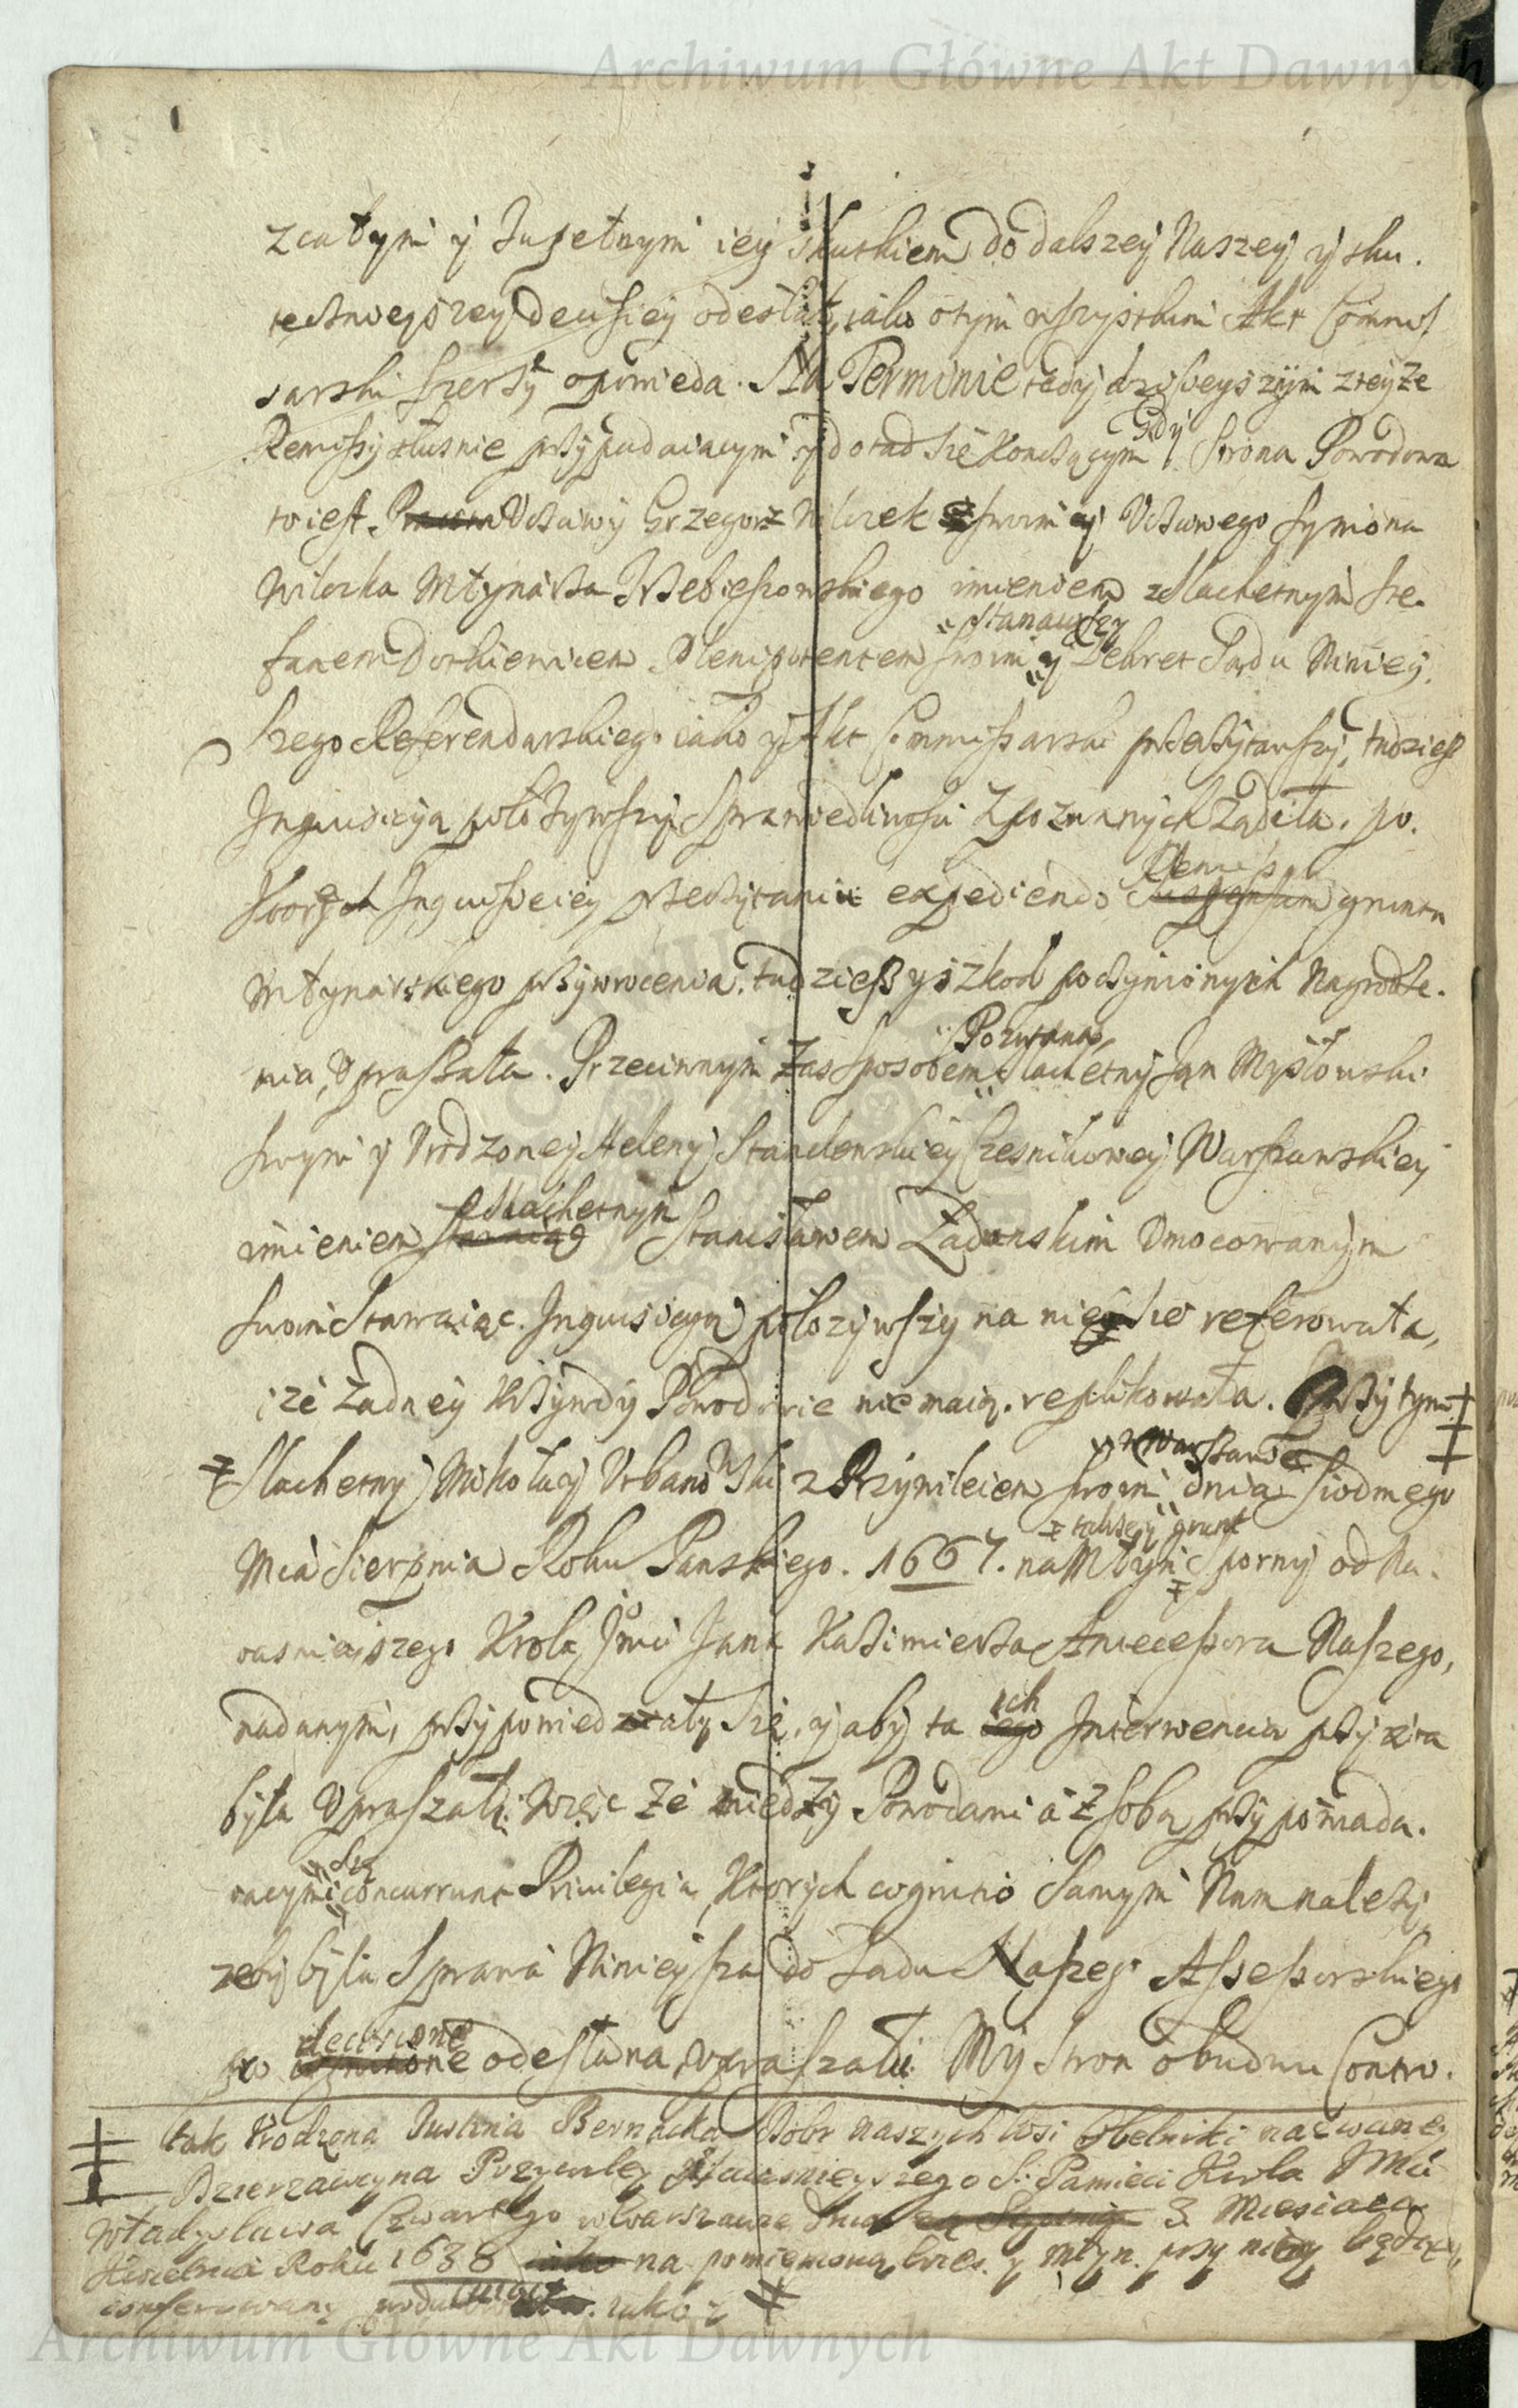 Archiwum Główne Akt Dawnych
z całym y zupełnym iey skutkiem do dalszey Naszey y sku.
tecznieyszey decisiey odesłał, iako o tym wszystkim Akt Commis
sarski szerzy opowieda. Na Terminie tedy dzisieyszym z teyże
Remissy słusnie przypadaiącym y dotąd się kończącym Gdy Strona Powodowa
to iest Uczciwy Grzegorz Wilczek swoim y Uczciwego Symona
Wilczka Młynarza Trzebieszowskiego imieniem z Slachetnym Ste.
fanem Plenipotentem swoim stanąwszy y Dekret Sądu Ninieÿ.
szego Referendarskiego iako y Akt Commissarski przeczytawszy, tudziesz
Inquisicyą położywszy Sprawiedliwości z pozwanych żądała. po.
których Inquisiciey przeczytaniu expediendo Remissam gruntu
młynarskiego przywrocenia, tudziesz y szkod poczynionych nagrodze.
nia, upraszała. Przeciwnym zas sposobem Pozwana Slachetny Jan Mysłowski
swym y Urodzoney Heleny Czesnikowey Warszawskiey
imieniem z Slachetnym Stanisławem Umocowanym
swoim stawaiąc. Inquisicyą położywszy na nię się referowała,
i że żadney krzywdy Powodowie nie maią, replikowała. Przy tym
Slachetny Mikołay Urbanski z Przywileiem swoim w Warszawie dnia siodmego
Mca Sierpnia Roku Panskiego. 1667. na Młyn także y grunt sporny od Na.
iasnieyszego Krola Jmci Jana Kazimierza Antecessora Naszego,
nadanym, przypowiedzały się, y aby ta ich Interwencia przyięta
była upraszali. Więc że między Powodami a z sobą przypowiada.
iącymi się concurrunt Priuilegia, ktorych cognitio samym Nam należy
żeby była Sprawa Ninieysza do Sądu Naszego Assessorskiego
pro decisione odesłana, upraszali. My stron obudwu Contro.
tak Urodzona Justina Bernacka Dobr naszych wsi Obelniki nazwaney
Dzierzawczyna Przywiley Naiasnieyszego S. Pamieci Krola Jmci
Władysława Czwartego w Warszawie Dnia 3 Miesiąca
Kwietnia Roku 1638 na pomienioną wies y młyn przy niey będący,
conferowany iako z
Archiwum Główne Akt Dawnych